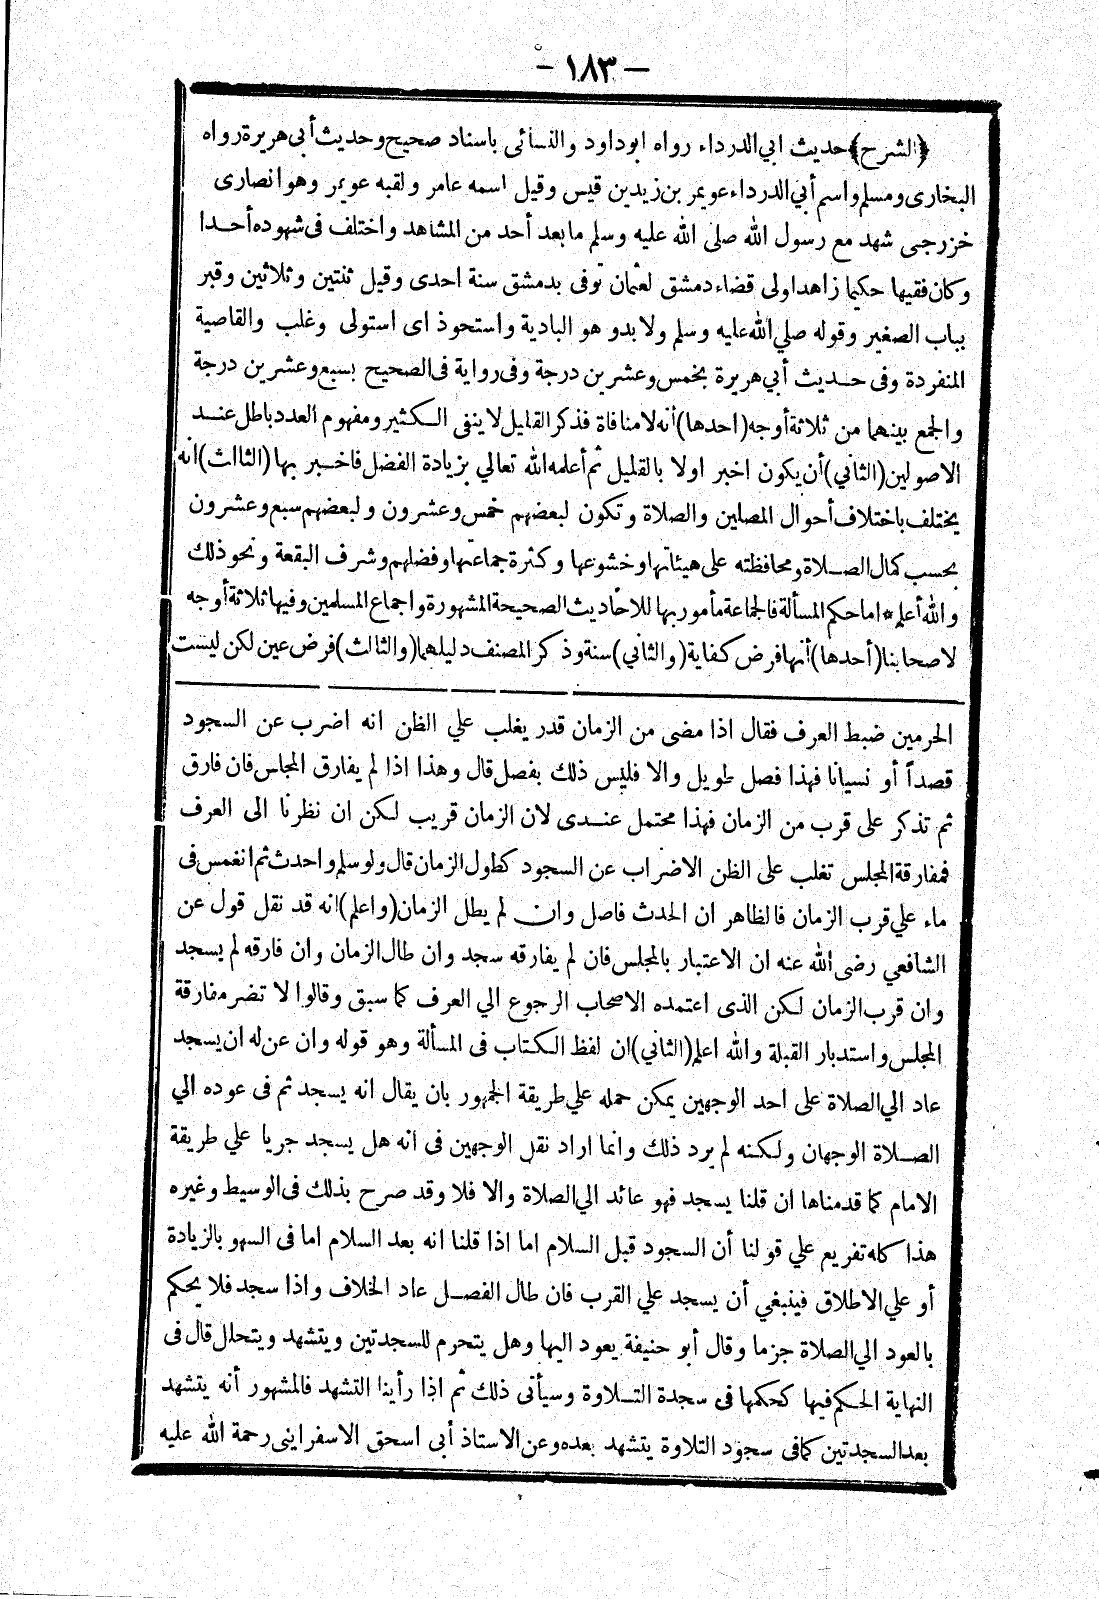 — ١٨٣ —
﴿الشرح﴾ حديث ابي الدرداء رواه ابوداود والنسائى باسناد صحيح وحديث أبى هريرة رواه
البخارى ومسلم واسم أبي الدرداء عويمر بن زيد بن قيس وقيل اسمه عامر ولقبه عويمر وهو انصارى
خزرجى شهد مع رسول الله صلى الله عليه وسلم ما بعد أحد من المشاهد واختلف فى شهوده أحدا
وكان فقيها حكيما زاهدا ولى قضاء دمشق لعثمان توفى بدمشق سنة احدى وقيل ثنتين وثلاثين وقبر
بباب الصغير وقوله صلي الله عليه وسلم ولا بدو هو البادية واستحوذ اى استولى وغلب والقاصية
المنفردة وفى حديث أبي هريرة بخمس وعشرين درجة وفى رواية فى الصحيح بسبع وعشرين درجة
والجمع بينهما من ثلاثة أوجه (احدها) أنه لا منافاة فذكر القليل لا ينفى الكثير ومفهوم العدد باطل عند
الاصولين (الثاني) أن يكون اخبر اولا بالقليل ثم أعلمه الله تعالي بزيادة الفضل فاخبر بها (الثالث) انه
يختلف باختلاف أحوال المصلين والصلاة وتكون لبعضهم خمس وعشرون ولبعضهم سبع وعشرون
بحسب كمال الصلاة ومحافظته على هيئاتها وخشوعها وكثرة جماعتها وفضلهم وشرف البقعة ونحو ذلك
والله أعلم * اما حكم المسألة فالجماعة مأمور بها للاحاديث الصحيحة المشهورة واجماع المسلمين وفيها ثلاثة أوجه
لاصحابنا (أحدها) أنها فرض كفاية (والثاني) سنة وذكر المصنف دليلهما (والثالث) فرض عين لكن ليست
الحرمين ضبط العرف فقال اذا مضى من الزمان قدر يغلب علي الظن انه اضرب عن السجود
قصداً أو نسيانا فهذا فصل طويل والا فليس ذلك بفصل قال وهذا اذا لم يفارق المجلس فان فارق
ثم تذكر على قرب من الزمان فهذا محتمل عندى لان الزمان قريب لكن ان نظرنا الى العرف
فمفارقة المجلس تغلب على الظن الاضراب عن السجود كطول الزمان قال ولو سلم واحدث ثم انغمس فى
ماء علي قرب الزمان فالظاهر ان الحدث فاصل وان لم يطل الزمان (واعلم) انه قد نقل قول عن
الشافعي رضى الله عنه ان الاعتبار بالمجلس فان لم يفارقه سجد وان طال الزمان وان فارقه لم يسجد
وان قرب الزمان لكن الذى اعتمده الاصحاب الرجوع الي العرف كما سبق وقالوا لا تضر مفارقة
المجلس واستدبار القبلة والله اعلم (الثاني) ان لفظ الكتاب فى المسألة وهو قوله وان عن له ان يسجد
عاد الي الصلاة على احد الوجهين يمكن حمله علي طريقة الجمهور بان يقال انه يسجد ثم فى عوده الي
الصلاة الوجهان ولكنه لم يرد ذلك وانما اراد نقل الوجهين فى انه هل يسجد جريا علي طريقة
الامام كما قدمناها ان قلنا يسجد فهو عائد الي الصلاة والا فلا وقد صرح بذلك فى الوسيط وغيره
هذا كله تفريع علي قولنا أن السجود قبل السلام اما اذا قلنا انه بعد السلام اما فى السهو بالزيادة
أو علي الاطلاق فينبغي أن يسجد علي القرب فان طال الفصل عاد الخلاف واذا سجد فلا يحكم
بالعود الي الصلاة جزما وقال أبو حنيفة يعود اليها وهل يتحرم للسجدتين ويتشهد ويتحلل قال فى
النهاية الحكم فيها كحكمها فى سجدة التلاوة وسيأتى ذلك ثم اذا رأينا التشهد فالمشهور أنه يتشهد
بعد السجدتين كما فى سجود التلاوة يتشهد بعده وعن الاستاذ أبى اسحق الاسفراينى رحمة الله عليه